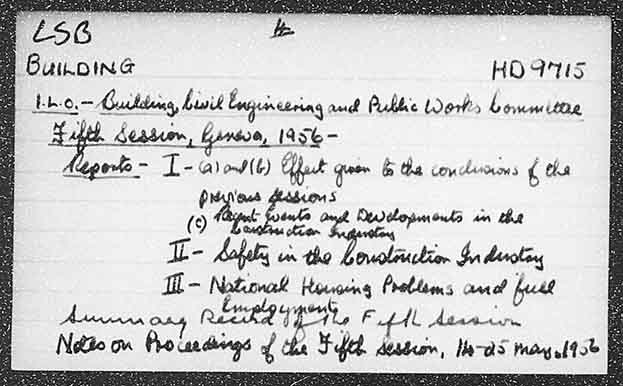 LSB
BUILDING HD 9715
I.L.O. - Building, Civil Engineering and Public Works Committee
Fifth Session, Geneva, 1956 -
Reports - I - (a) and (b) Effect given to the conclusions of the
previous sessions
(c) Recent Events and Developments in the
Construction Industry
II - Safety in the Construction Industry
III - National Housing Problems and full
Employment
Summary Record of the Fifth Session
Notes on Proceedings of the Fifth Session, 14-25 May, 1956